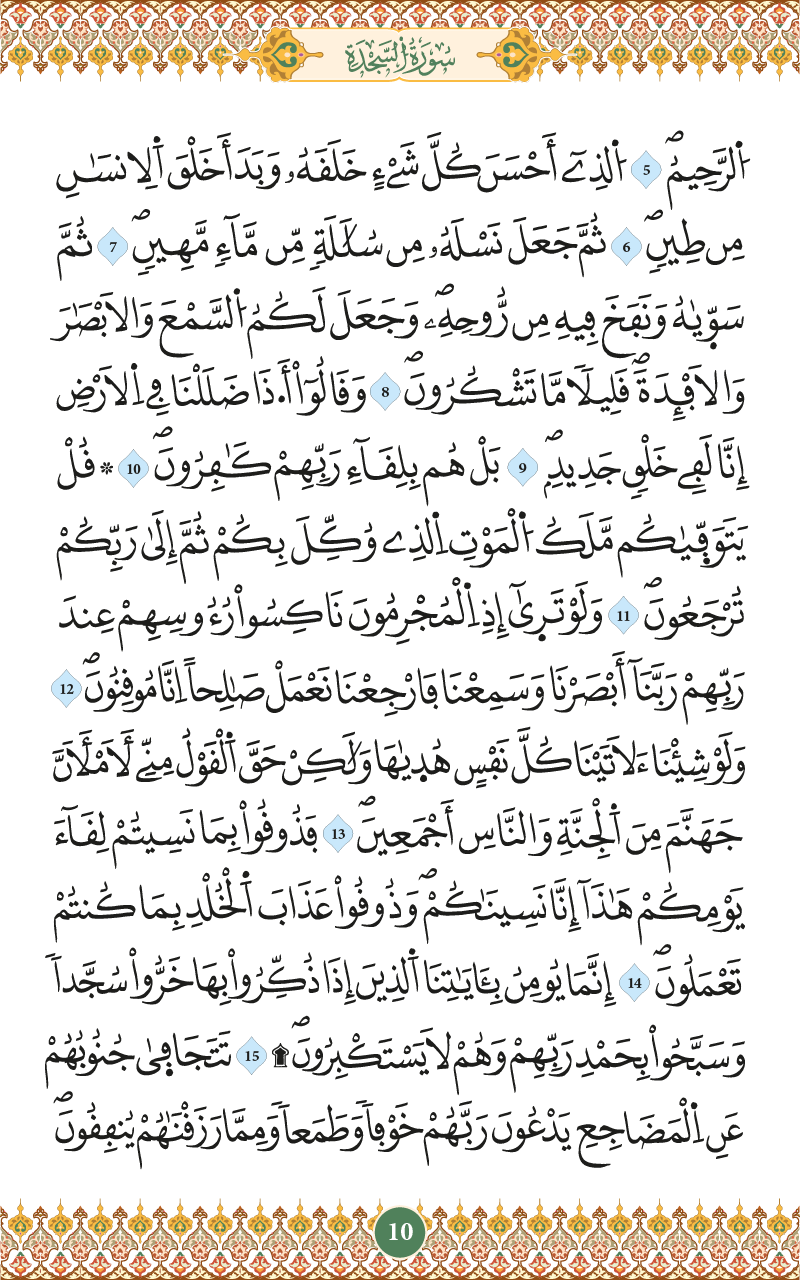 سُورَةُ السَّجْدَةِ
اُ۬لرَّحِيمُۖ 5 اُ۬لذِےٓ أَحْسَنَ كُلَّ شَےْءٍ خَلَقَهُۥ وَبَدَأَ خَلْقَ اَ۬لِانسَٰنِ
مِن طِينٖۖ 6 ثُمَّ جَعَلَ نَسْلَهُۥ مِن سُلَٰلَةٖ مِّن مَّآءٖ مَّهِينٖۖ 7 ثُمَّ
سَوّ۪يٰهُ وَنَفَخَ فِيهِ مِن رُّوحِهِۦۖ وَجَعَلَ لَكُمُ اُ۬لسَّمْعَ وَالَابْصَٰرَ
وَالَافْـِٕدَةَۖ قَلِيلاٗ مَّا تَشْكُرُونَۖ 8 وَقَالُوٓاْ أَ.ذَا ضَلَلْنَا فِے اِ۬لَارْضِ
إِنَّا لَفِے خَلْقٖ جَدِيدِۢۖ 9 بَلْ هُم بِلِقَآءِ رَبِّهِمْ كَٰفِرُونَۖ 10 * قُلْ
يَتَوَفّ۪يٰكُم مَّلَكُ اُ۬لْمَوْتِ اِ۬لذِے وُكِّلَ بِكُمْ ثُمَّ إِلَىٰ رَبِّكُمْ
تُرْجَعُونَۖ 11 وَلَوْ تَر۪ىٰٓ إِذِ اِ۬لْمُجْرِمُونَ نَاكِسُواْ رُءُوسِهِمْ عِندَ
رَبِّهِمْ رَبَّنَآ أَبْصَرْنَا وَسَمِعْنَا فَارْجِعْنَا نَعْمَلْ صَٰلِحاً اِنَّا مُوقِنُونَۖ 12
وَلَوْ شِيْنَا ءَلَاتَيْنَا كُلَّ نَفْسٍ هُد۪يٰهَا وَلَٰكِنْ حَقَّ اَ۬لْقَوْلُ مِنِّے لَأَمْلَأَنَّ
جَهَنَّمَ مِنَ اَ۬لْجِنَّةِ وَالنَّاسِ أَجْمَعِينَۖ 13 فَذُوقُواْ بِمَا نَسِيتُمْ لِقَآءَ
يَوْمِكُمْ هَٰذَآ إِنَّا نَسِينَٰكُمْۖ وَذُوقُواْ عَذَابَ اَ۬لْخُلْدِ بِمَا كُنتُمْ
تَعْمَلُونَۖ 14 إِنَّمَا يُومِنُ بِـَٔايَٰتِنَا اَ۬لذِينَ إِذَا ذُكِّرُواْ بِهَا خَرُّواْ سُجَّداٗ
وَسَبَّحُواْ بِحَمْدِ رَبِّهِمْ وَهُمْ لَا يَسْتَكْبِرُونَۖ ۩ 15 تَتَجَاف۪ىٰ جُنُوبُهُمْ
عَنِ اِ۬لْمَضَاجِعِ يَدْعُونَ رَبَّهُمْ خَوْفاٗ وَطَمَعاٗ وَمِمَّا رَزَقْنَٰهُمْ يُنفِقُونَۖ
10